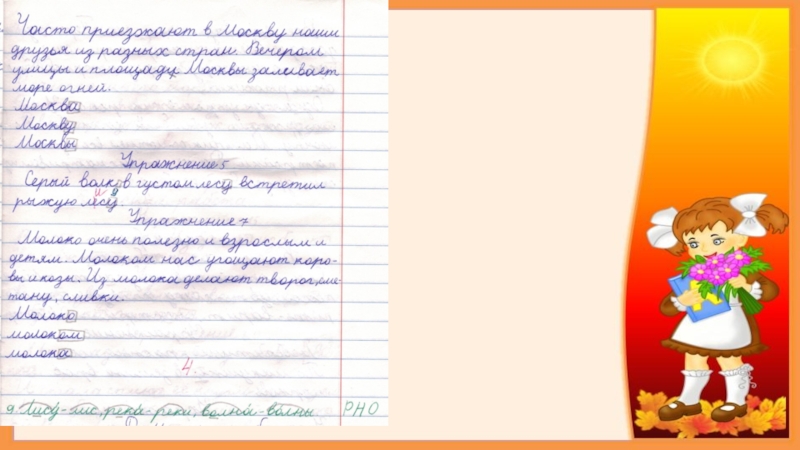 Часто приезжают в Москву наши
друзья из разных стран. Вечером
улицы и площади Москвы заливает
море огней.
Москва
Москву
Москвы
Упражнение 5
Серый волк в густом лесу встретил
рыжую лесу.
и
Упражнение 7
Молоко очень полезно и взрослым и
детям. Молоком нас угощают коро-
вы и козы. Из молока делают творог, сме-
тану, сливки.
Молоко
молоком
молока
4
я. Лису - лис, река - реки, волна - волны РНО